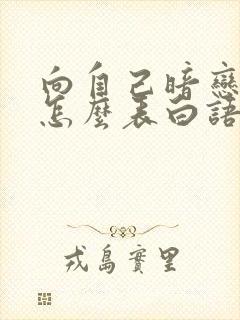 向自己暗戀
怎麼表白語
戎島實里